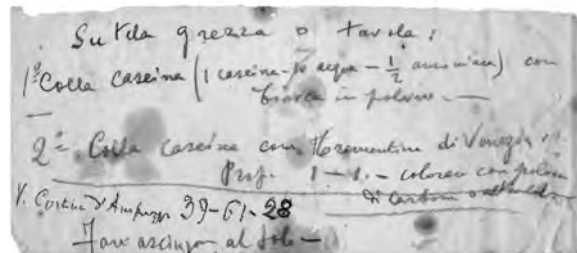 Su tela grezza o tavola:
1º Colla caseina (1 caseina - 10 acqua - 1/2 ammoniaca) con
biacca in polvere. —
2ª Colla caseina con Trementina di Venezia
Prop. 1 - 1. - colorea con polvere
di carbone
V. Cortina d'Ampezzo 39-61-28
Fare asciugar al sole —